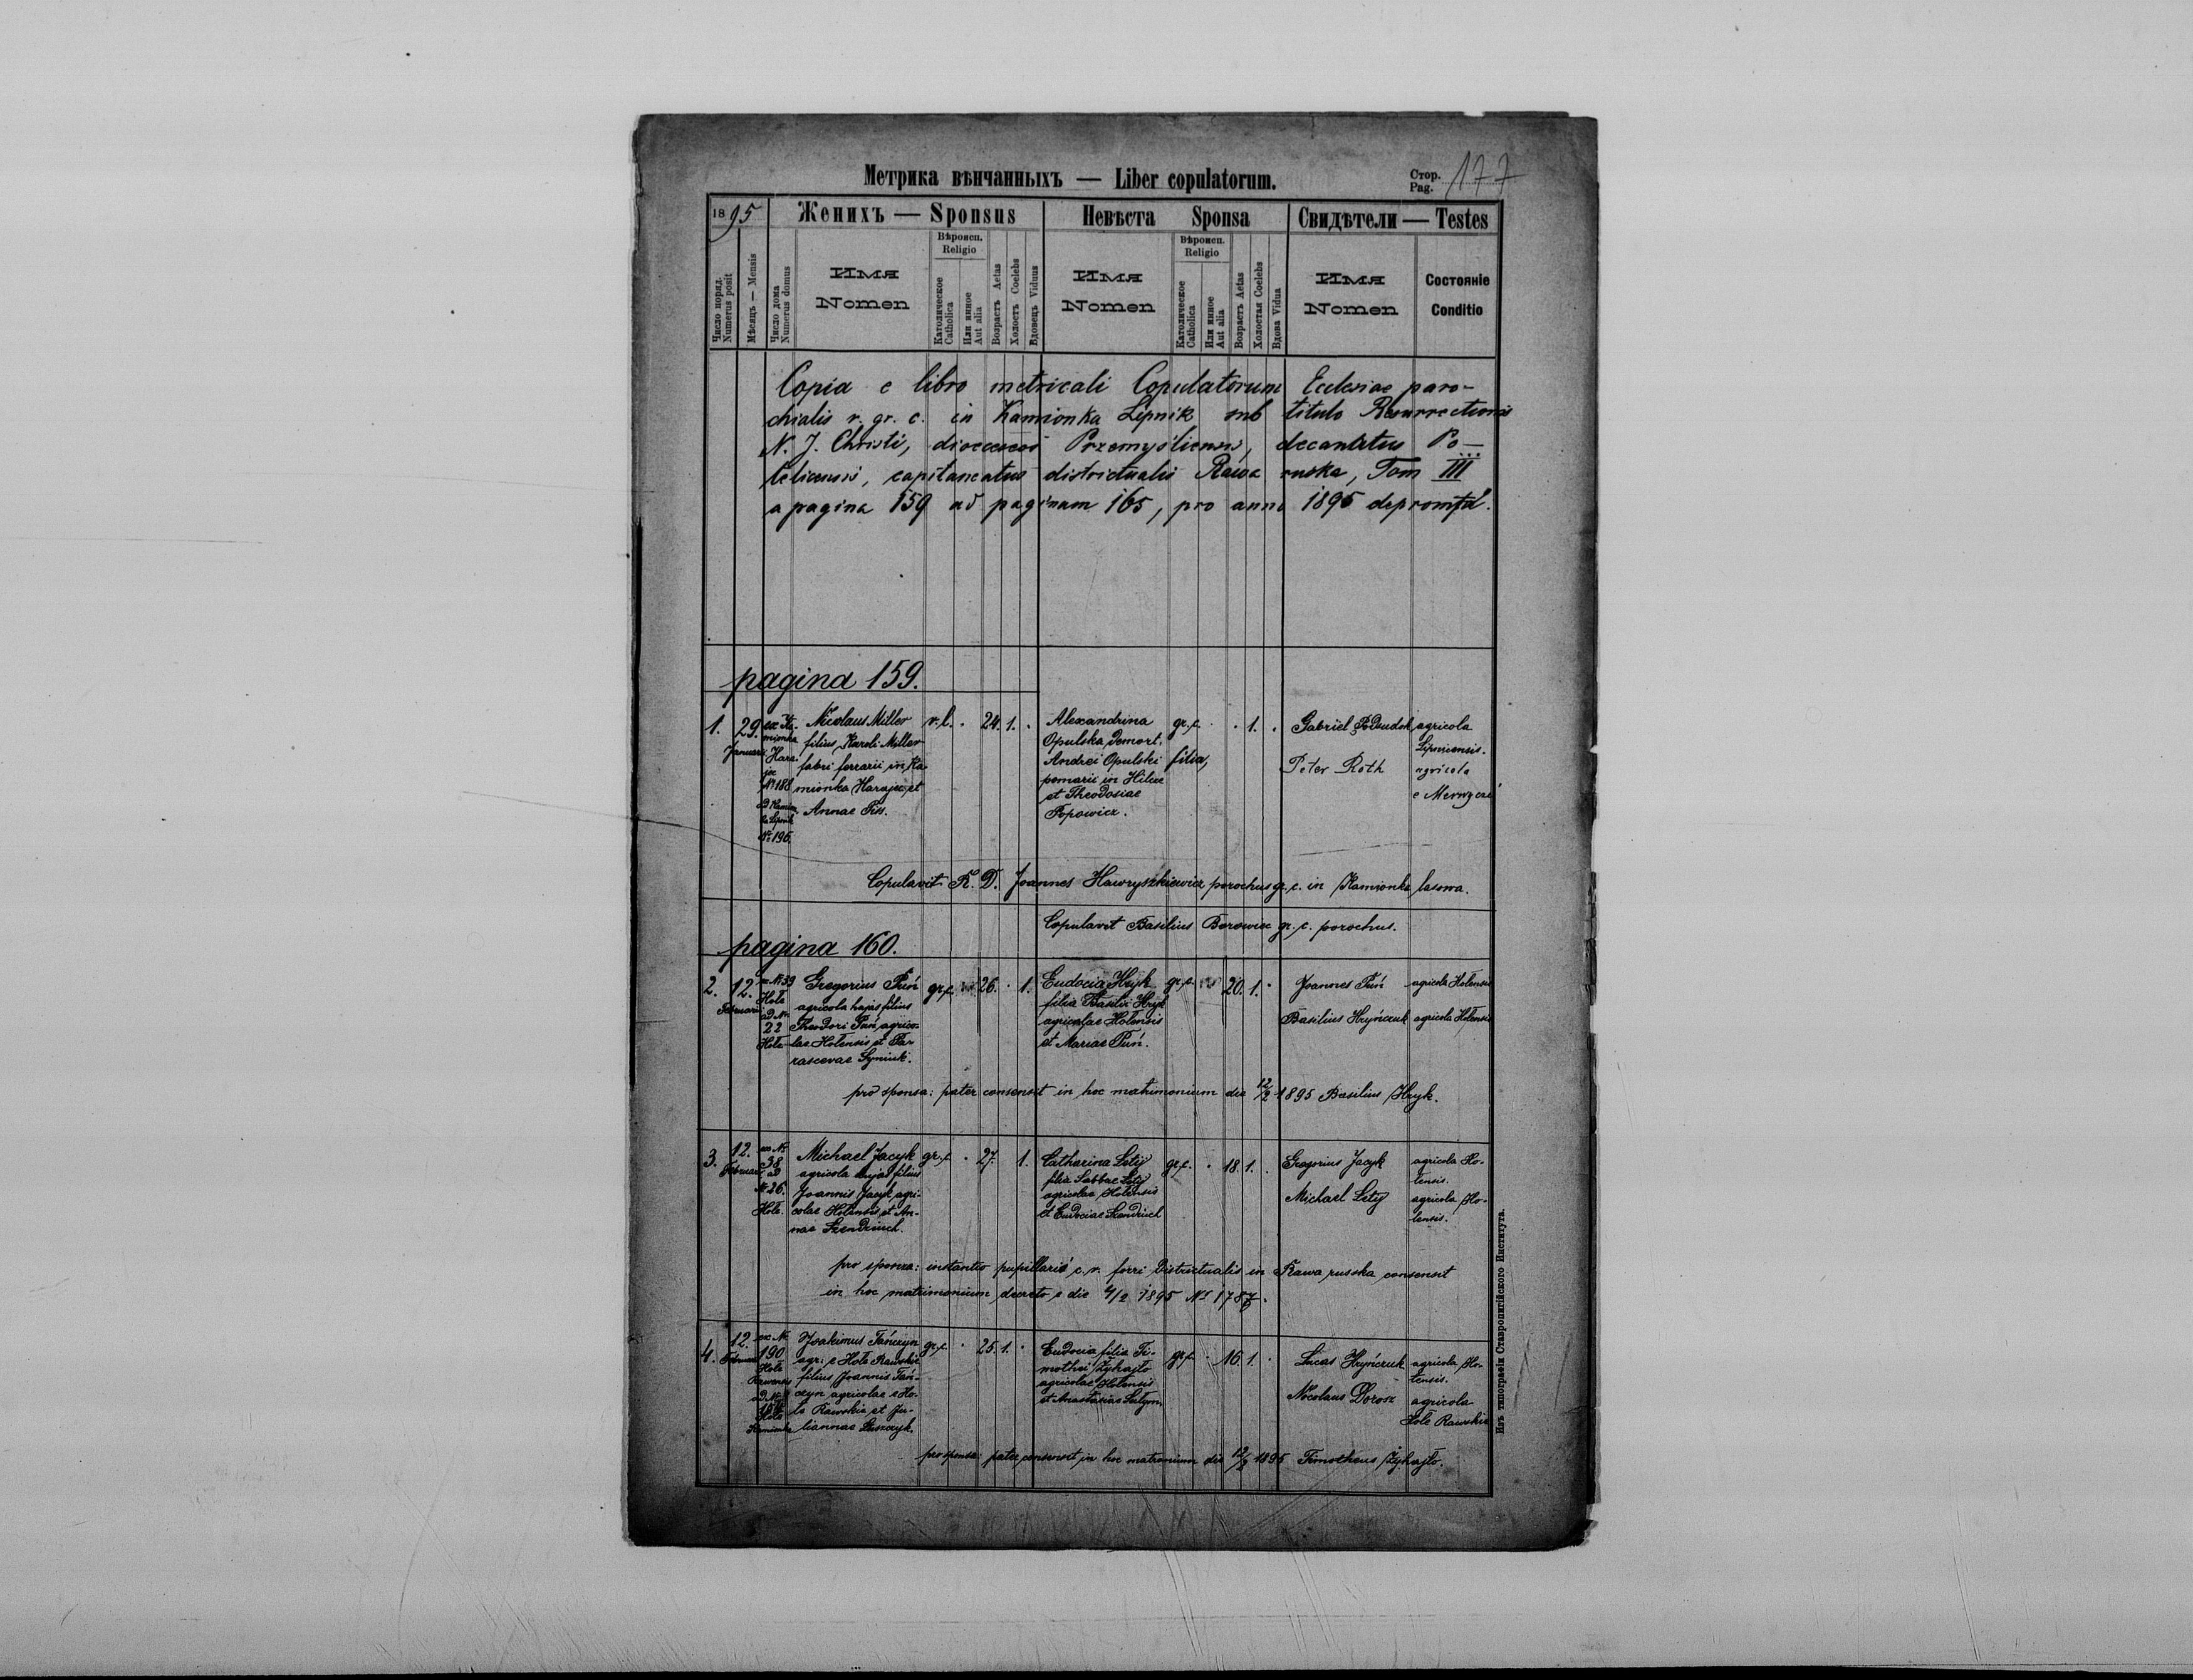 Метрика вѣнчанныхъ — Liber copulatorum.
Стор.
Pag. 177
1895
Женихъ — Sponsus
Невѣста Sponsa
Свидѣтели — Testes
Число поряд.
Numerus posit
Мѣсяцъ — Mensis
Число дома
Numerus domus
Имя
Nomen
Вѣроисп.
Religio
Католическое
Catholica
Или инное
Aut alia
Возрастъ Aetas
Холостъ Coelebs
Вдовецъ Viduus
Имя
Nomen
Вѣроисп.
Religio
Католическое
Catholica
Или инное
Aut alia
Возрастъ Aetas
Холостая Coelebs
Вдова Vidua
Имя
Nomen
Состояніе
Conditio
Copia e libro metricali Copulatorum Ecclesiae paro-
chialis r. gr. c. in Kamionka Lipnik sub titulo Resurrectionis
N. J. Christi, dioeceseos Przemysliensis, decanatus Po-
telicensis, capitaneatus districtualis Rawa ruska, Tom III
a pagina 159 ad paginam 165, pro anno 1895 depromta.
pagina 159.
1. 29.
Januarii
ex Ka-
mionka
Hara-
jec
№ 188
ad Kamion-
ka Lipnik
№ 196.
Nicolaus Miller
filius Karoli Miller
fabri ferrarii in Ka-
mionka Harajec et
Annae Fiss.
r. l. 24. 1.
Alexandrina
Opulska demort.
Andrei Opulski filia,
pomarii in Hilcze
et Theodosiae
Popowicz.
gr. c. 1.
Gabriel agricola
Lipniensis.
Peter Roth agricola
Copulavit R. D. Joannes Hawryszkiewicz parochus gr. c. in Kamionka lasowa.
Copulavit Basilius Borowiec gr. c. parochus.
pagina 160.
2. 12.
Februarii
ex № 39
Hole
ad №
22
Hole
Gregorius Puń
agricola hujas filius
Theodori Puń, agrico-
lae Holensis et Pa-
rascevae Symiuk.
gr. c. 26. 1.
Eudocia Hryk
filia Basilii Hryk
agricolae Holensis
et Mariae Puń.
gr. c. 20. 1.
Joannes Puń agricola Holensis
Basilius Hryńczuk agricola Holensis
pro sponsa: pater consensit in hoc matrimonium die 12/2 1895 Basilius Hryk.
3. 12.
Februarii
ex №
38
ad
№ 26.
Hole.
Michael Jacyk
agricola hujas filius
Joannis Jacyk agri-
colae Holensis et An-
nae Szendziuch.
gr. c. 27. 1.
Catharina Lety
filia Sabbae Lety
agricolae Holensis
et Eudociae Szendziuch
gr. c. 18. 1.
Gregorius Jacyk agricola Ho-
lensis.
Michael Lety agricola Ho-
lensis.
pro sponsa: instantio pupillaris c. r. forri districtualis in Rawa russka consensit
in hoc matrimonium decreto e die 4/2 1895 № 1787.
4. 12.
Februarii
ex №
190
Hole
Rawensis
ad №
Hole
Kamionka
Joakimus Tańczyn
agr: e Hole Rawskie
filius Joannis Tań-
czyn agricolae e Ho-
le Rawskie et Ju-
liannae
gr. c. 25. 1.
Eudocia filia Ti-
mothei Żyhajlo
agricolae Holensis
et Anastasiae
gr. c. 16. 1.
Lucas Hryńczuk agricola Ho-
lensis.
Nicolaus Dorosz agricola
Hole Rawskie
pro sponsa: pater consensit in hoc matrimonium die 12/2 1895 Timotheus Żyhajlo.
Изъ типографіи Ставропигійского Института.